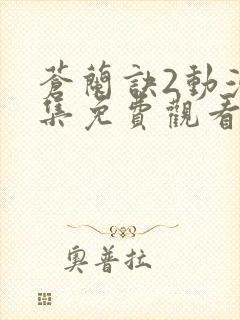 蒼蘭訣2動
集免費觀看
奧普拉